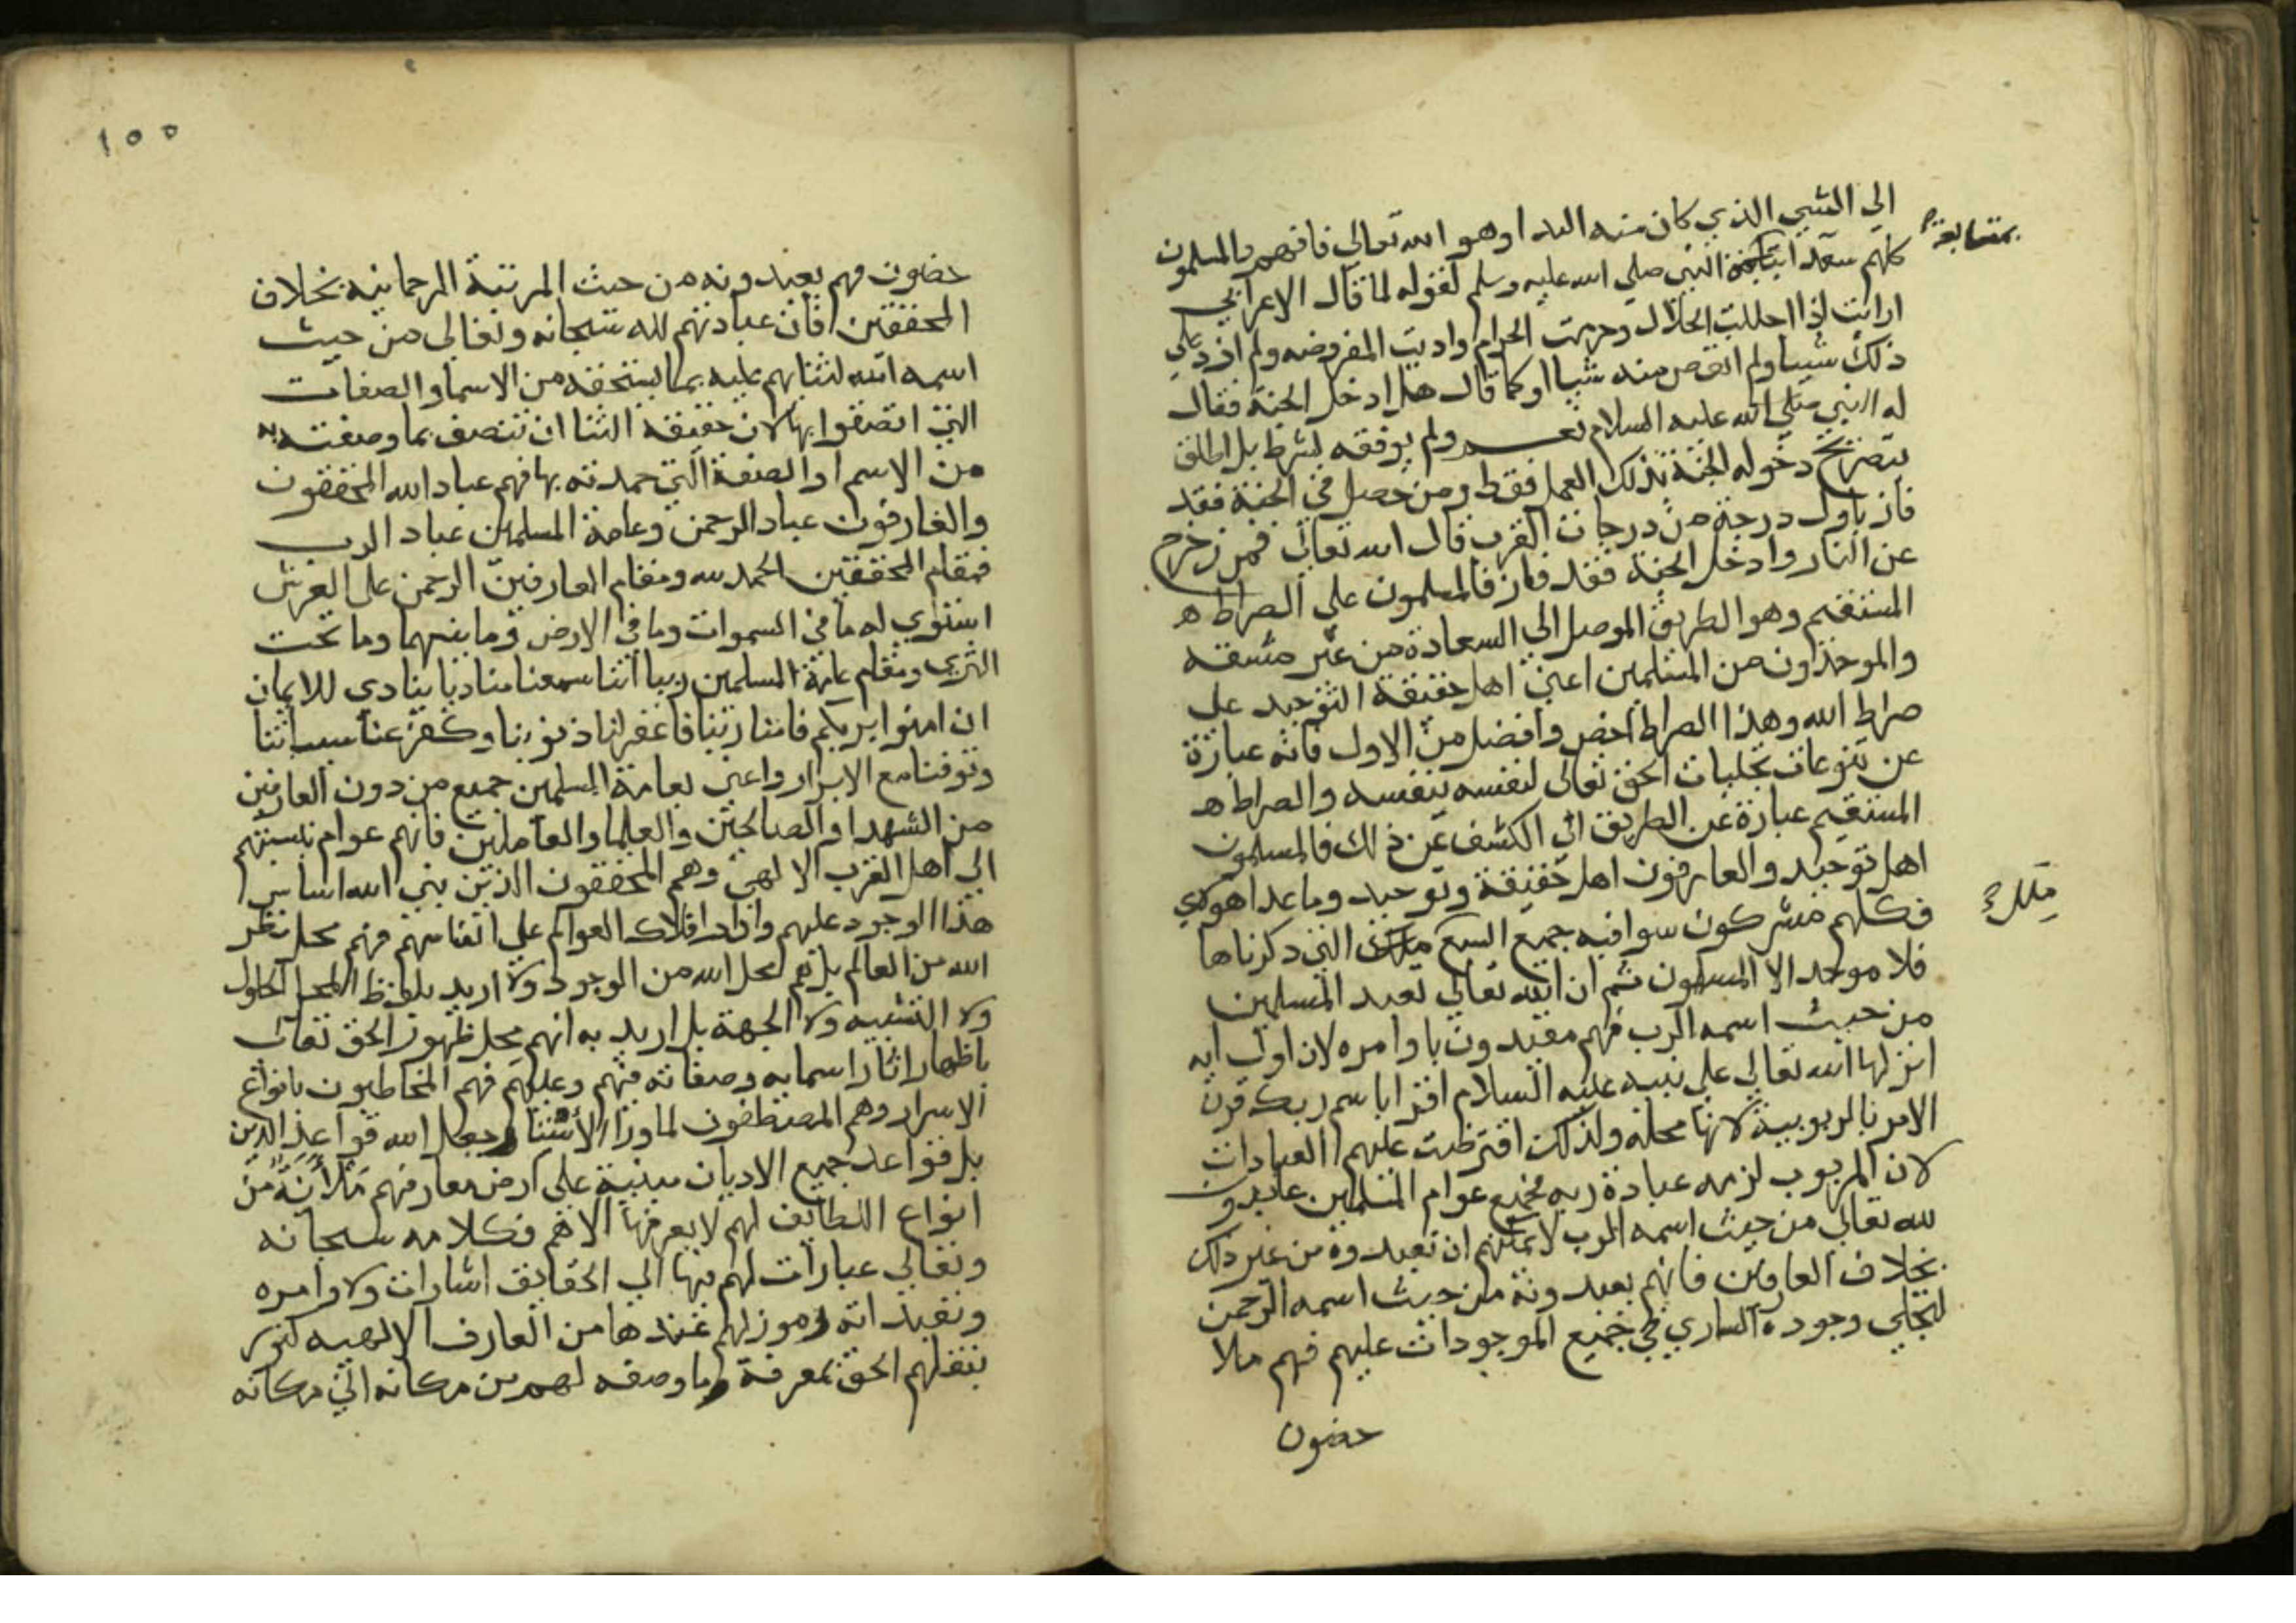 الي الشيي الذي كان منه البدا وهو الله تعالي فافهم والمسلمون
بمتابعة
كلهم سعدا النبي صلي الله عليه وسلم لقوله لما قال الاعرابي
ارايت اذا احللت الحلال وحرمت الحرام واديت المفروضه ولم ازد علي
ذلك شييا ولم انقص منه شيا او كما قال هل ادخل الجنة فقال
له النبي صلي الله عليه السلام نعم ولم يوقفه بشرط بل اطلق
بتصريح دخوله الجنة بذلك العمل فقط ومن حصل في الجنة فقد
فاز باول درجة من درجات القرب قال الله تعالي فمن زحزح
عن النار وادخل الجنة فقد فاز فالمسلمون علي الصراط
المستقيم وهو الطريق الموصل الي السعادة من غير مشقه
والموحدون من المسلمين اعني اهل حقيقة التوحيد علي
صراط الله وهذا الصراط اخص وافضل من الاول فانه عبارة
عن تنوعات تجليات الحق تعالي لنفسه بنفسه والصراط
المستقيم عبارة عن الطريق الي الكشف عن ذلك فالمسلمون
اهل توحيد والعارفون اهل حقيقة وتوحيد وما عدا هولاي
فكلهم مشركون سوا فيه جميع السبع التي ذكرناها
فلا موحد الا المسلمون ثم ان الله تعالي تعبد المسلمين
من حيث اسمه الرب فهم مقيدون باوامره لان اول ايه
انزلها الله تعالي علي نبيه عليه السلام اقرا باسم ربك قرن
الامر بالربوبية لانها محله ولذلك افترظت عليهم العبادات
لان المربوب لزمه عبادة ربه فجميع عوام المسلمين عابدو
لله تعالي من حيث اسمه الرب لا يمكنهم ان يعبدوه من غير ذلك
بخلاف العارفين فانهم يعبدونه من حيث اسمه الرحمن
لتجلي وجوده الساري في جميع الموجودات عليهم فهم ملا
حضون
١٥٥
حضون فهم يعبدونه من حيث المرتبة الرحمانيه بخلاف
المحققين فان عبادتهم لله سبحانه وتعالي من حيث
اسمه الله لثنايهم عليه بما يستحقه من الاسما والصفات
التي اتصفوا بها لان حقيقة الثنا ان تتصف بما وصفته به
من الاسم او الصفة التي حمدته بها فهم عباد الله المحققون
والعارفون عباد الرحمن وعامة المسلمين عباد الرب
فمقام المحققين الحمد لله ومقام العارفين الرحمن علي العرش
استوي له ما في السموات وما في الارض وما بينهما وما تحت
الثري ومقام عامة المسلمين ربنا اننا سمعنا مناديا ينادي للايمان
ان امنوا بربكم فامنا ربنا فاغفر لنا ذنوبنا وكفر عنا سياتنا
وتوفنا مع الابرار واعني بعامة المسلمين جميع من دون العارفين
من الشهدا والصالحين والعلما والعاملين فانهم عوام بنسبتهم
الي اهل القرب الالهي وهم المحققون الذين بني الله اساس
هذا الوجود عليهم وادار افلاك العوالم علي انفاسهم فهم محل نظر
الله من العالم بل هم محل الله من الوجود ولا اريد بلفظ المحل الحلول
ولا التشبيه ولا الجهة بل اريد به انهم محل ظهور الحق تعالي
باظهار اثار اسمايه وصفاته فيهم وعليهم فهم المخاطبون بانواع
الاسرار وهم المصطفون لما ورا الاستار وجعل الله قواعد الدين
بل قواعد جميع الاديان مبنية علي ارض معارفهم ملانة من
انواع اللطايف لهم لا يعرفها الا هم فكلامه سبحانه
وتعالي عبارات لهم فيها الي الحقايق اشارات ولاوامره
وتعبداته رموز لهم عندها من العارف الالهيه كنوز
ينقلهم الحق بمعرفة ما وصفه لهم من مكانه الي مكانه